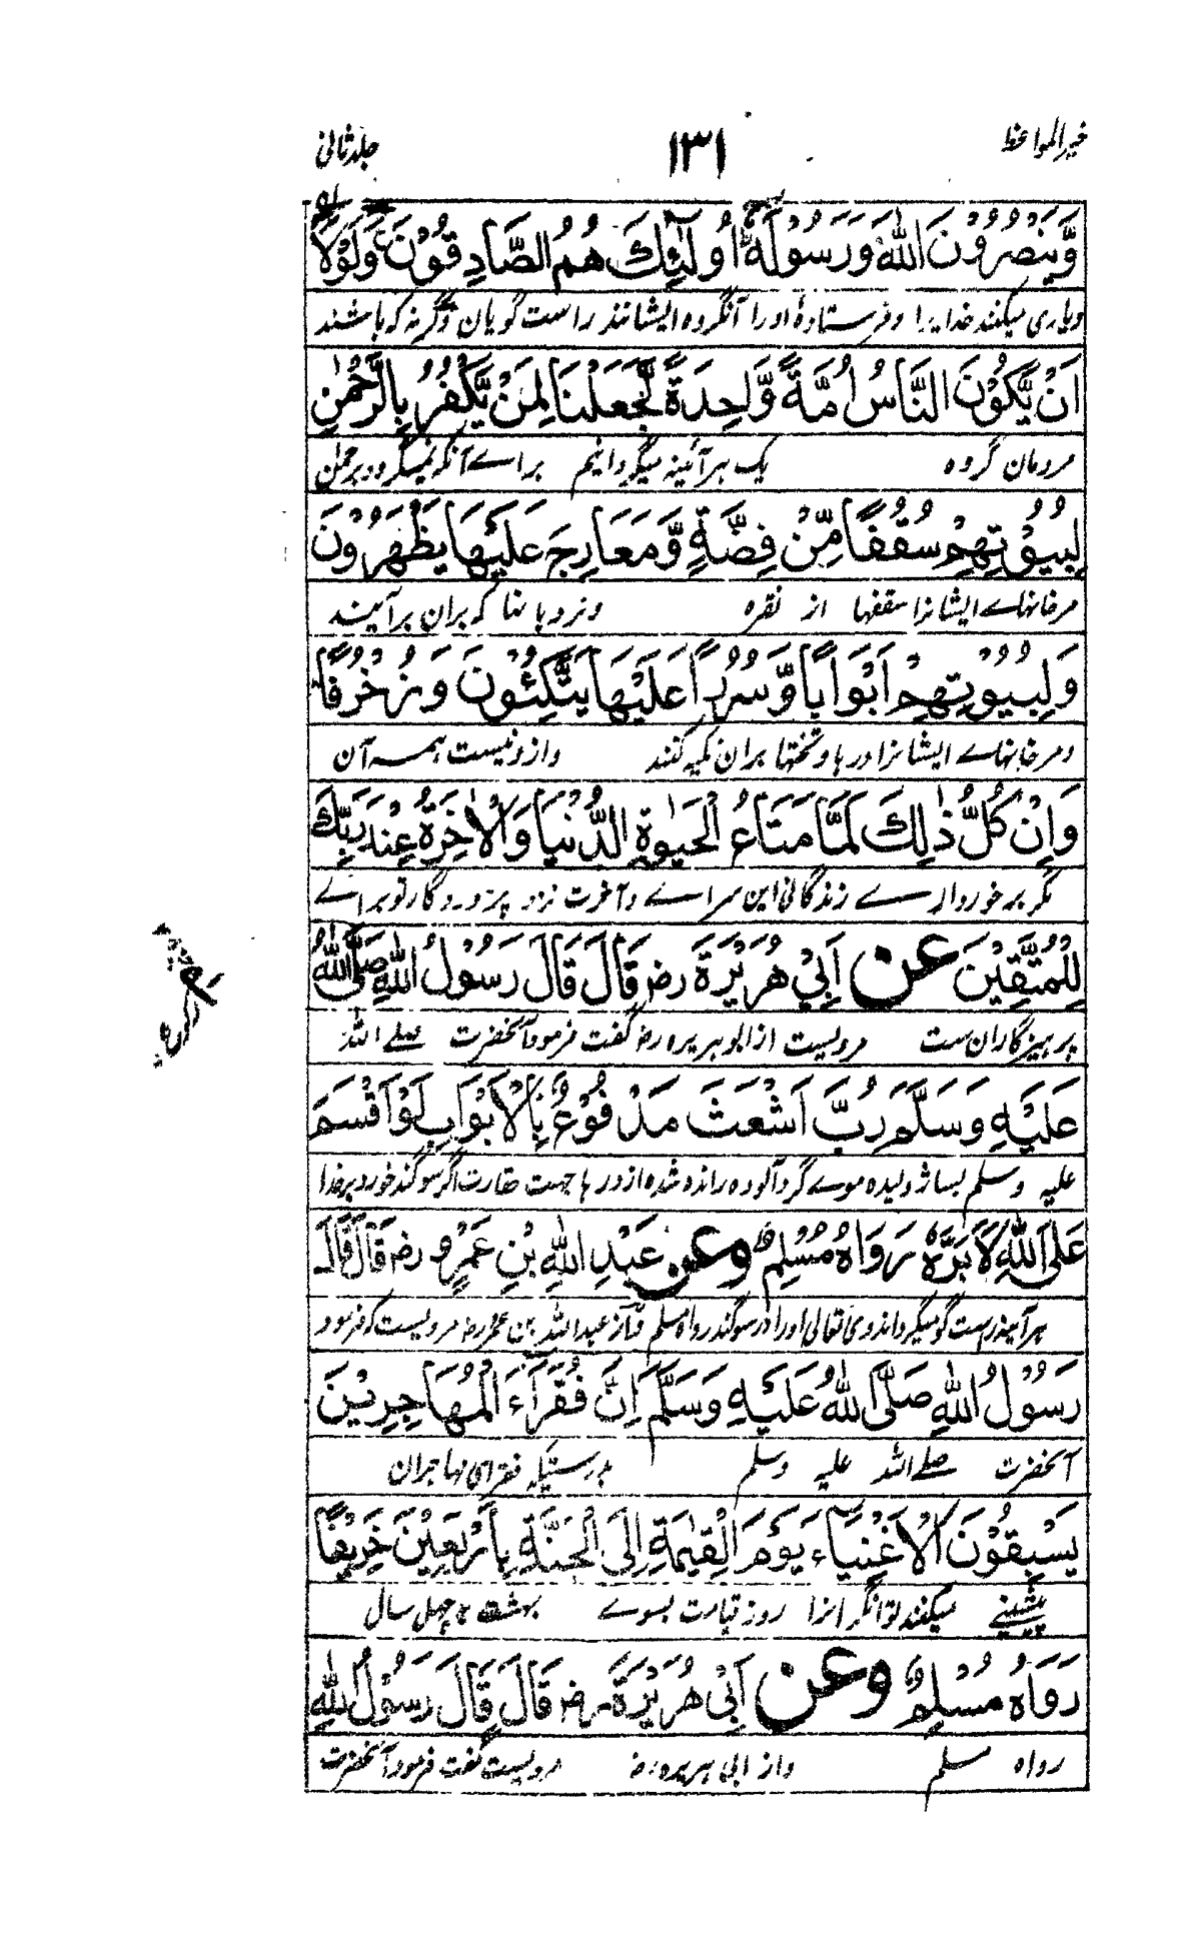 خیر المواعظ ۱۳۱ جلد ثانی
وَّيَنْصُرُوْنَ اللهَ وَرَسُوْلَهٗ اُولٰٓئِكَ هُمُ الصَّادِقُوْنَ وَلَوْلَا
ویاری میکنند خدایرا وفرستادهٔ اورا آنگروه ایشانند راست گویان وگرنه که باشند
اَنْ يَّكُوْنَ النَّاسُ اُمَّةً وَّاحِدَةً لَّجَعَلْنَا لِمَنْ يَّكْفُرُ بِالرَّحْمٰنِ
مردمان گروه یک ہر آئینه میگردانیم براے آنکه نمیگرود برحمن
لِبُيُوْتِهِمْ سُقُفًا مِّنْ فِضَّةٍ وَّمَعَارِجَ عَلَيْهَا يَظْهَرُوْنَ
مرخانهاے ایشانرا سقفها از نقره ونردبانها که بران برآیند
وَلِبُيُوْتِهِمْ اَبْوَابًا وَّسُرُرًا عَلَيْهَا يَتَّكِئُوْنَ وَزُخْرُفًا
ومرخانهاے ایشانرا درها وتختها بران تکیه کنند واز ونیست همه آن
وَاِنْ كُلُّ ذٰلِكَ لَمَّا مَتَاعُ الْحَيٰوةِ الدُّنْيَا وَالْاٰخِرَةُ عِنْدَ رَبِّكَ
مگر برخورداری زندگانی این سراے وآخرت نزد پروردگار تو براے
لِلْمُتَّقِيْنَ عن اَبِيْ هُرَيْرَةَ رض قَالَ قَالَ رَسُوْلُ اللهِ صَلَّى اللهُ
پرہیزگاران ست مرویست از ابو ہریره رض گفت فرمود آنحضرت صلے اللہ
عَلَيْهِ وَسَلَّمَ رُبَّ اَشْعَثَ مَدْفُوْعٌ بِالْاَبْوَابِ لَوْ اَقْسَمَ
علیه وسلم بسا ژولیده موے گردآلوده رانده شده از درها جهت حقارت اگر سوگند خورد برخدا
عَلَى اللهِ لَاَبَرَّهٗ رَوَاهُ مُسْلِمٌ وعن عَبْدِ اللهِ بْنِ عَمْرٍو رض قَالَ قَالَ
ہر آئینه راست گو میگرداند وی تعالی اورا در سوگند رواه مسلم واز عبد اللہ بن عمر رض مرویست که فرمود
رَسُوْلُ اللهِ صَلَّى اللهُ عَلَيْهِ وَسَلَّمَ اِنَّ فُقَرَآءَ الْمُهَاجِرِيْنَ
آنحضرت صلے اللہ علیه وسلم بدرستیکه فقرای مهاجران
يَسْبِقُوْنَ الْاَغْنِيَآءَ يَوْمَ الْقِيٰمَةِ اِلَى الْجَنَّةِ بِاَرْبَعِيْنَ خَرِيْفًا
پیشینے میکنند توانگرانرا روز قیامت بسوے بہشت به چهل سال
رَوَاهُ مُسْلِمٌ وعن اَبِيْ هُرَيْرَةَ رض قَالَ قَالَ رَسُوْلُ اللهِ
رواه مسلم واز ابی ہریره رض مرویست گفت فرمود آنحضرت